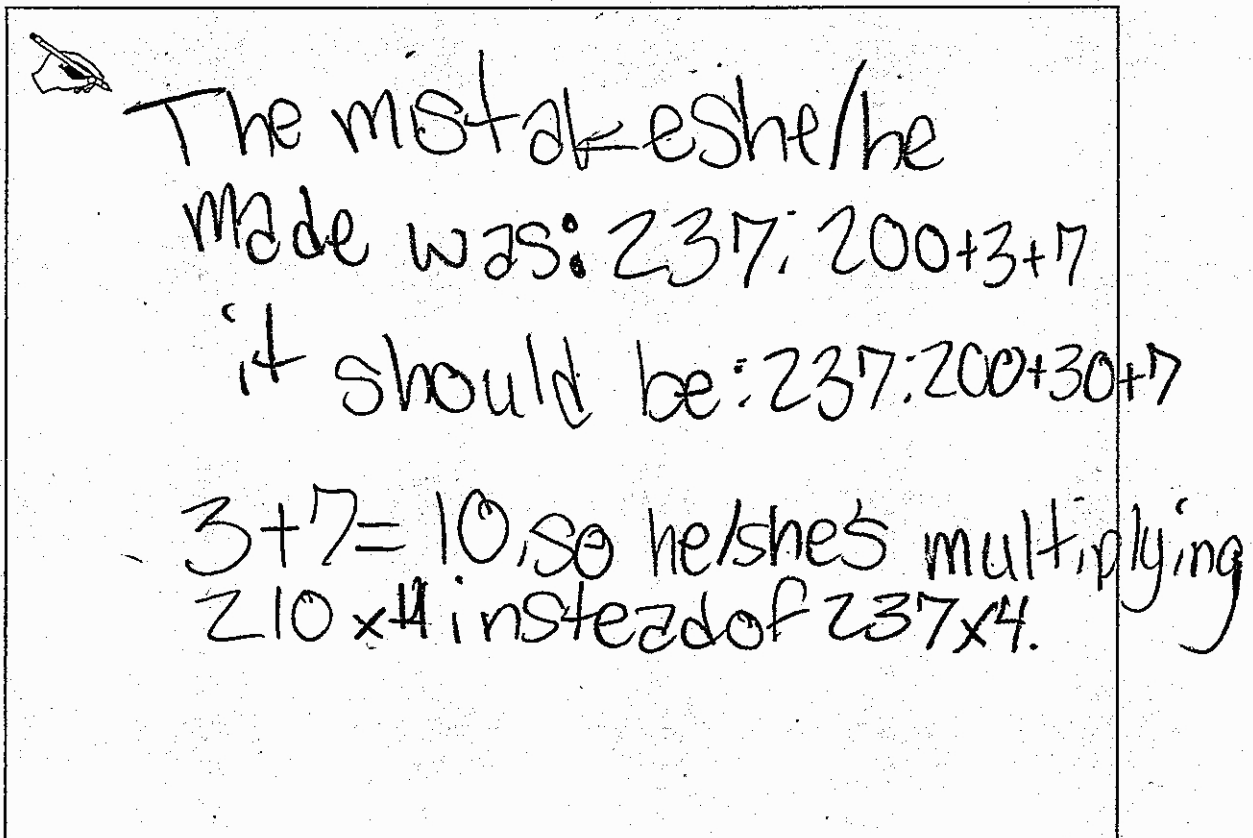 The mistake she/he
made was: 237: 200+3+7
it should be: 237:200+30+7
3+7=10, so he/she's multiplying
210 x 4 instead of 237x4.